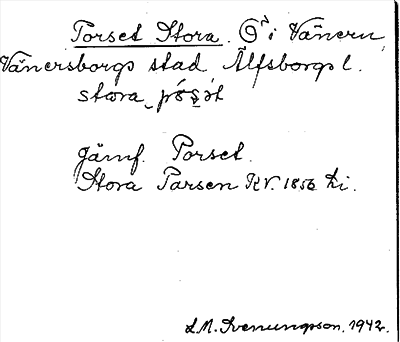 Torset Stora. Ö i Vänern,
Vänersborgs stad Älfsborgs l.
stora
Jämf. Torset.
Stora Parsen KV. 1856 hi.
L.M. Svenungsson. 1942.